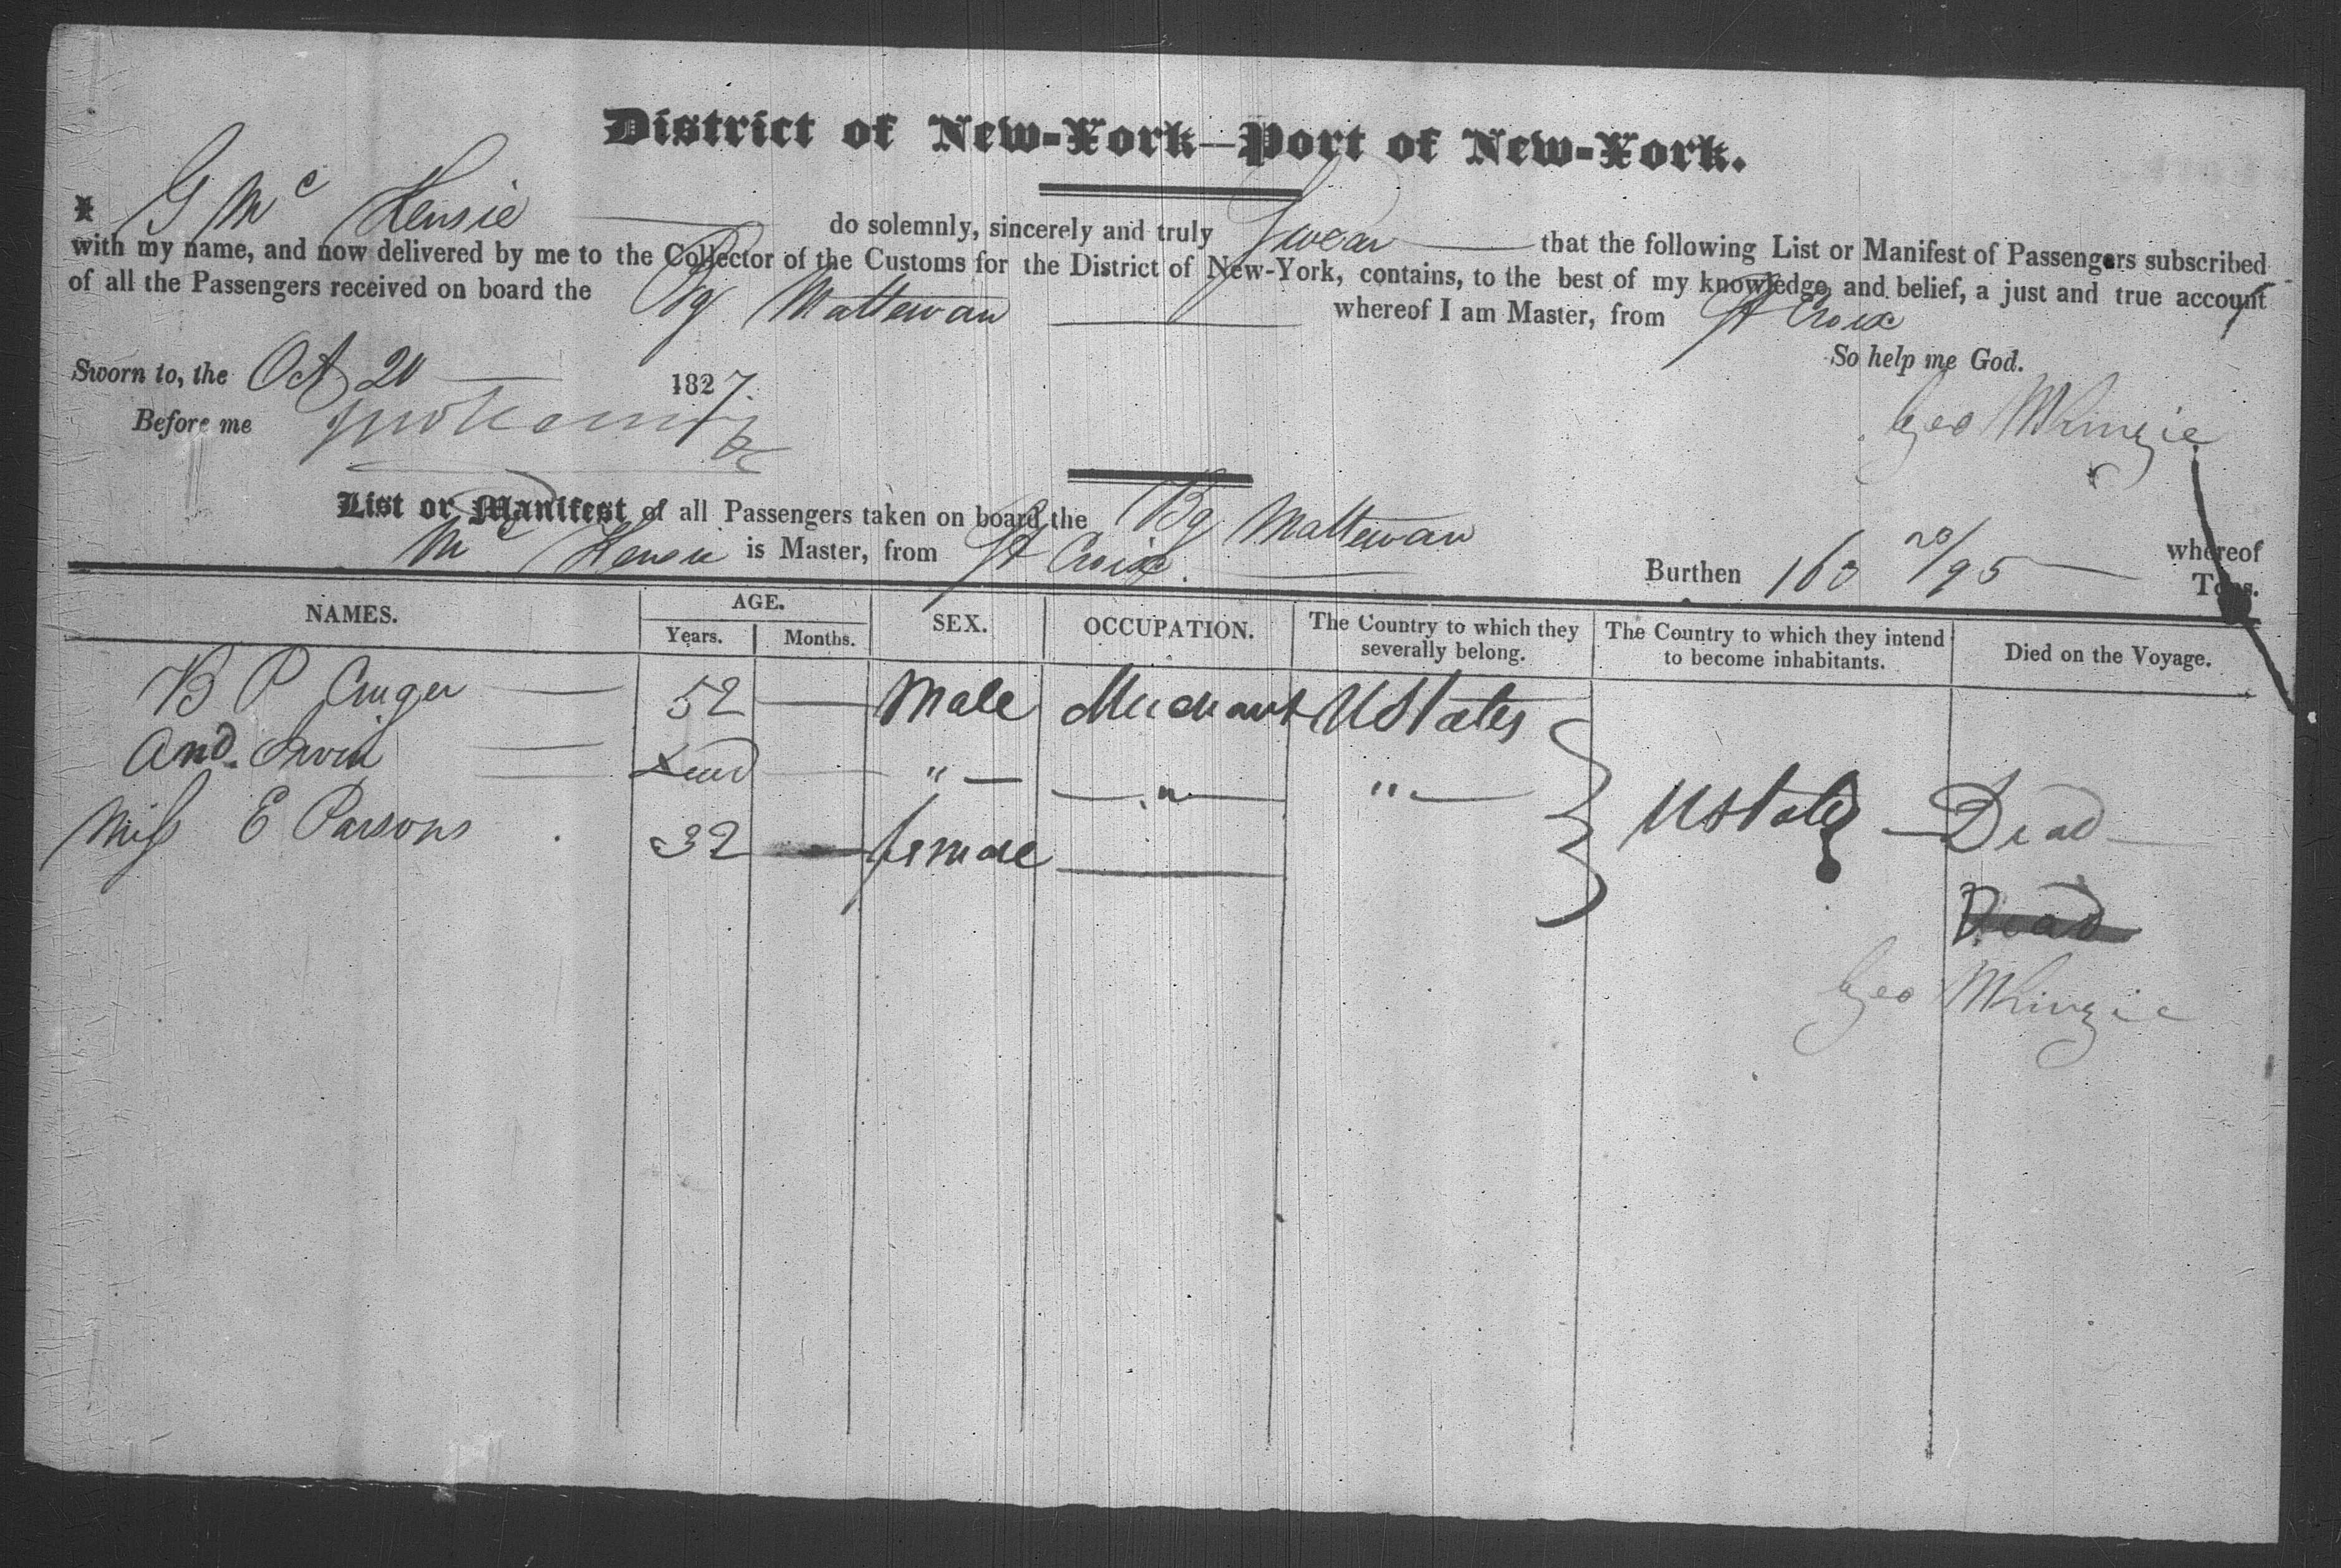 District of New-York—Port of New-York.
I G Mc Kensie do solemnly, sincerely and truly Swear that the following List or Manifest of Passengers subscribed
with my name, and now delivered by me to the Collector of the Customs for the District of New-York, contains, to the best of my knowledge, and belief, a just and true account
of all the Passengers received on board the Bg Mattewan whereof I am Master, from St Croix
So help me God.
Sworn to, the Oct 20 1827.
Before me
Geo McKinzie
List or Manifest of all Passengers taken on board the Bg Mattewan whereof
Mc Kensie is Master, from St Croix. Burthen 160 20/95 Tons.
NAMES. AGE. SEX. OCCUPATION. The Country to which they severally belong. The Country to which they intend to become inhabitants. Died on the Voyage.
Years. Months.
B P Cruger 52 Male Merchant UStates
And. Irvin " " " UStates Dead
Miss E Parsons 32 female
Dead
Geo McKinzie